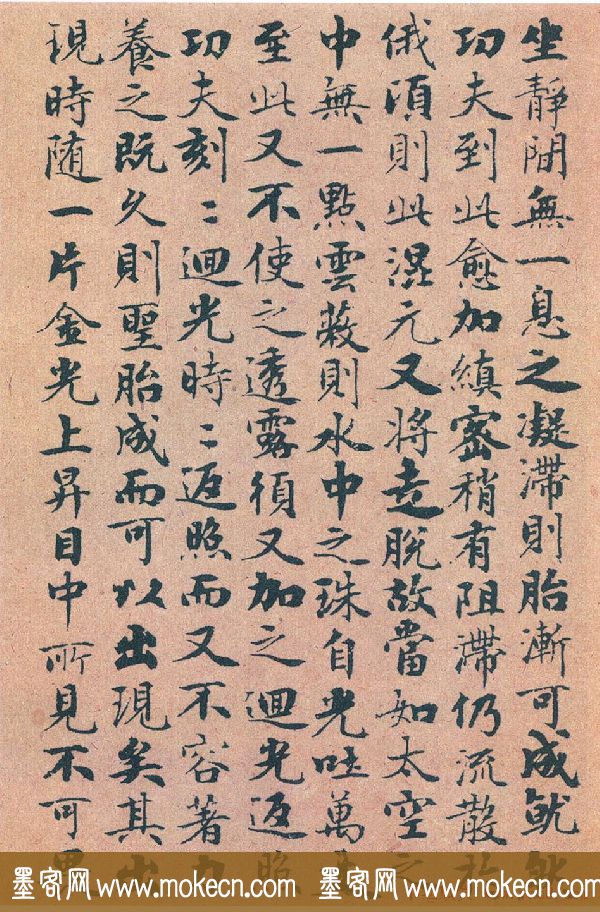 坐靜間無一息之凝滯則胎漸可成就
功夫到此愈加縝密稍有阻滯仍流散於
俄頃則此混元又將走脫故當如太空之
中無一點雲蔽則水中之珠自光吐萬
至此又不使之透露須又加之迴光返照
功夫刻〻迴光時〻返照而又不容著力
養之既久則聖胎成而可以出現矣其出
現時随一片金光上昇目中所見不可
墨客网 www.mokecn.com 墨客网 www.mokecn.com